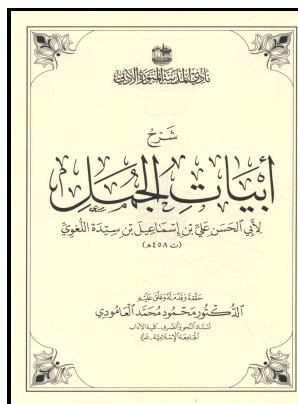 نادي المدينة المنورة الأدبي
شرح
أبيات الجمل
لأبي الحسن علي بن إسماعيل بن سيدة اللغوي
(ت ٤٥٨ هـ)
حققه وقدم له وعلق عليه
الدكتور محمود محمد العامودي
أستاذ النحو والصرف - كلية الآداب
الجامعة الإسلامية - غزة